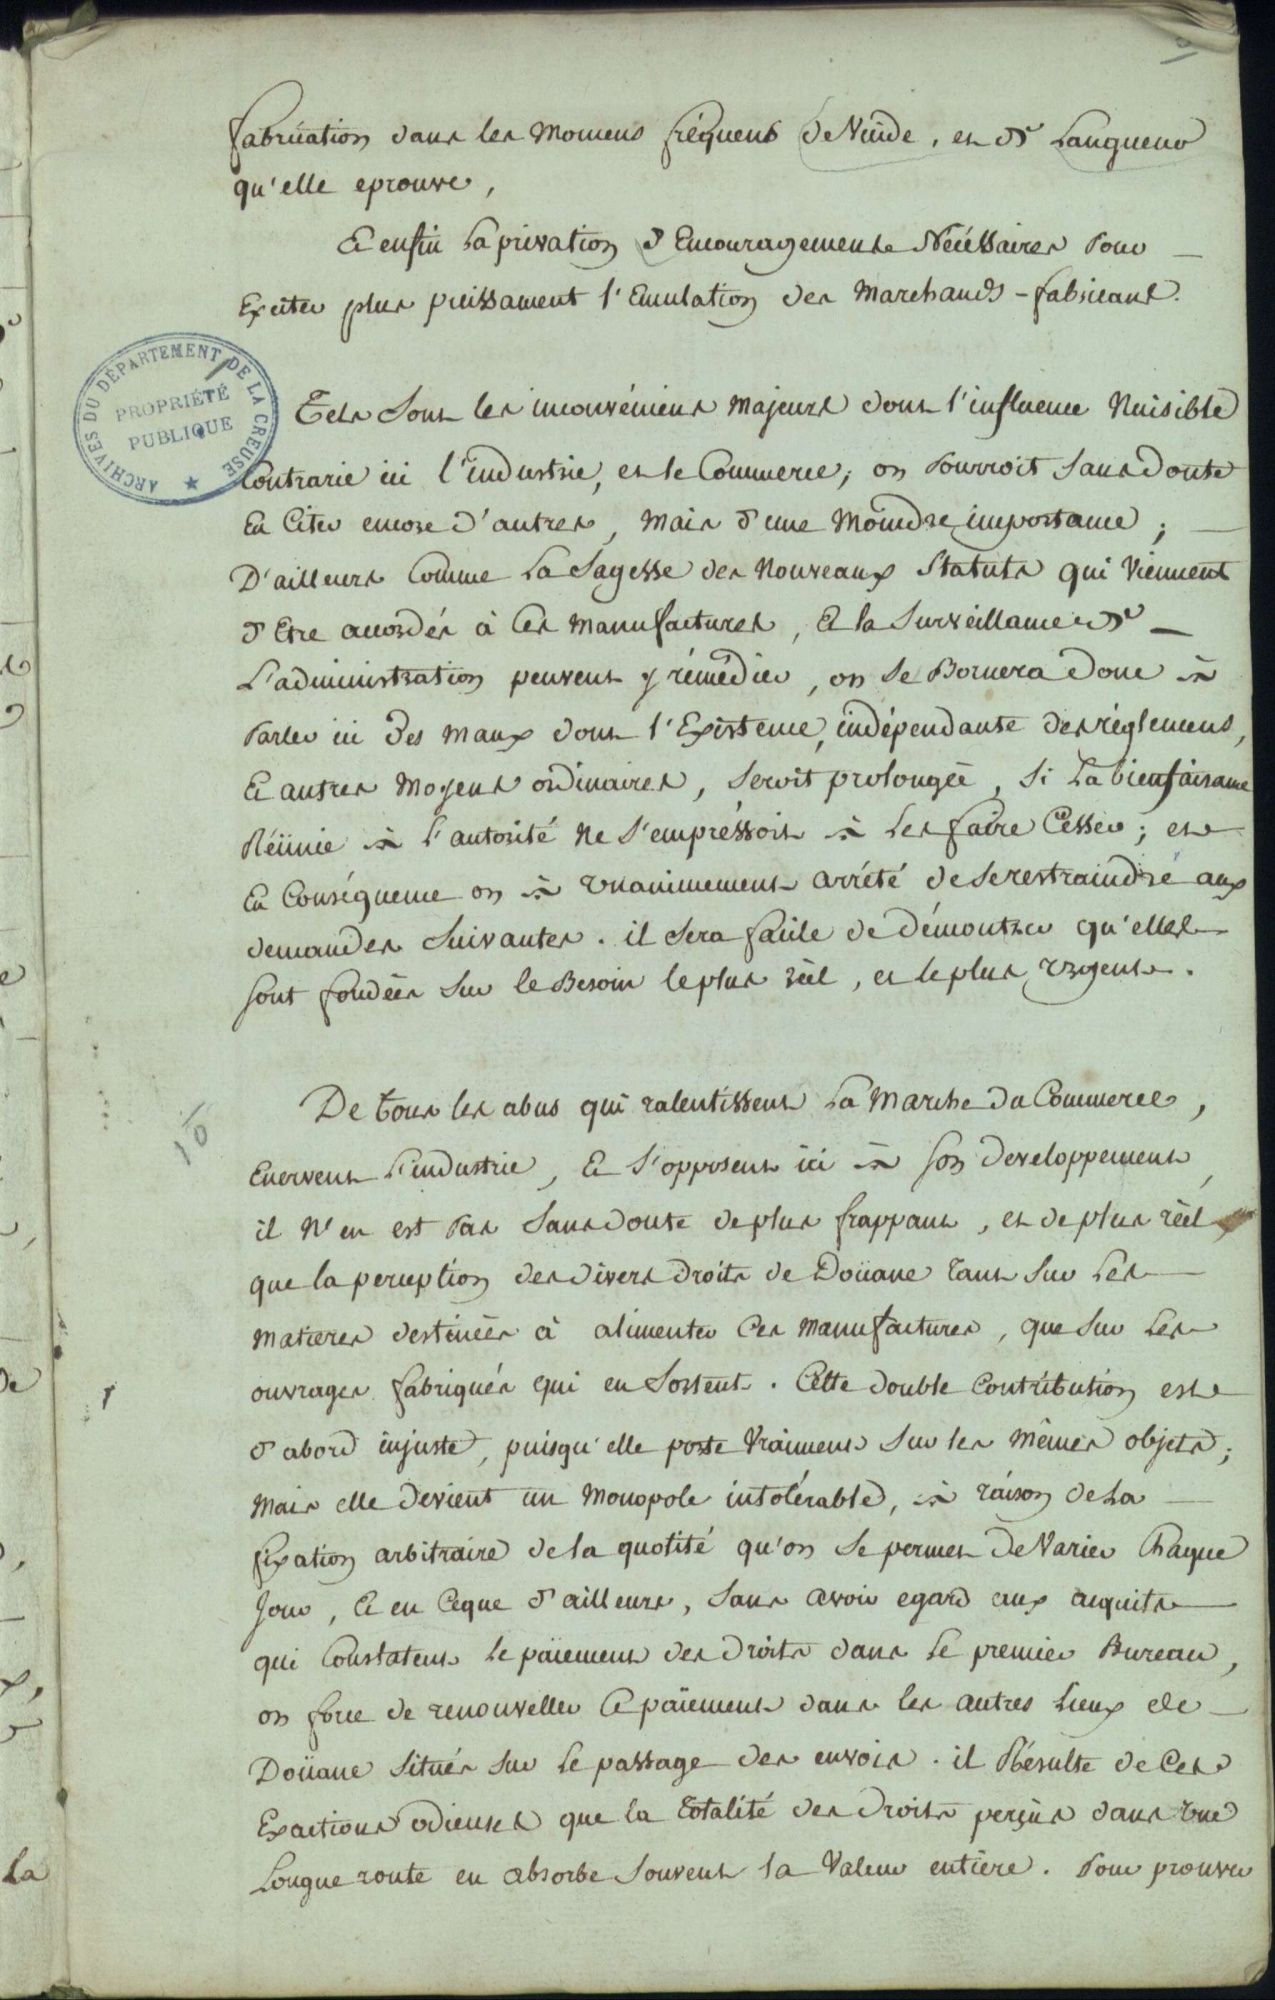 fabrication dans les Momens fréquens de Vuide, et de Langueur
qu'elle eprouve,
Et enfin La privation d'Encouragements Nécéssaires Pour
Exciter plus puissament l'Emulation des Marchands-fabricans.
ARCHIVES DU DÉPARTEMENT DE LA CREUSE
PROPRIÉTÉ
PUBLIQUE
Tels sont les inconvéniens Majeurs dont l'influence Nuisible
Contrarie ici l'industrie, et le Commerce; on Pourroit sans doute
En Citer encore d'autres, Mais d'une Moindre importance;
D'ailleurs Comme La Sagesse des Nouveaux Statuts qui Viennent
d'Etre accordés à Ces Manufactures, Et la Surveillance de
L'administration peuvent y rémédier, on se Bornera donc à
Parler ici Des Maux dont l'Existence, indépendante des réglemens,
Et autres Moyens ordinaires, seroit prolongée, Si La bienfaisance
Réünie à L'autorité Ne S'empréssoit à Les faire Cesser; et
En Conséquence on à Unanimement arrété de se restraindre aux
demandes Suivantes. il sera facile de démontrer qu'elles
sont fondées Sur le Besoin le plus réel, et le plus Urgent.
De tous les abus qui ralentissent La Marche du Commerce,
Enervent L'industrie, Et S'opposent ici à son developpement,
il N'en est Pas Sans doute de plus frappant, et de plus réel
que la perception des divers droits de Doüane tant Sur Les
Matieres destinées à alimenter Ces Manufactures, que Sur Les
ouvrages fabriqués qui en Sortent. Cette double Contribution est
d'abord injuste, puisqu'elle porte Vraiment Sur les Mêmes objets;
Mais elle devient un Monopole intolérable, à raison de La
fixation arbitraire de la quotité qu'on se permet de Varier Chaque
Jour, Et en Ceque d'ailleurs, Sans avoir egard aux acquits
qui Constatent Le païement des droits dans Le premier Bureau,
on force de renouveller Ce païement dans les autres Lieux de
Doüane Situés Sur Le passage des envois. il Résulte de Ces
Exactions odieuses que la totalité des droits perçus dans Une
Longue route en absorbe Souvent la Valeur entière. Pour prouver